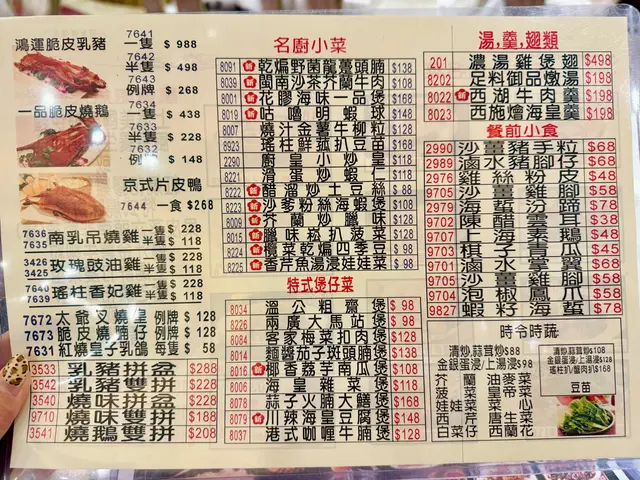 鴻運脆皮乳豬
7641 一隻 $ 988
7642 半隻 $ 498
7643 例牌 $ 268
一品脆皮燒鵝
7634 一隻 $ 438
7633 半隻 $ 228
7632 例牌 $ 148
京式片皮鴨
7644 一食 $268
7636 7635 南乳吊燒雞 一隻 $ 228 半隻 $ 118
3426 3425 玫瑰豉油雞 一隻 $ 228 半隻 $ 118
7640 7639 瑤柱香妃雞 一隻 $ 228 半隻 $ 118
7672 太爺叉燒皇 例牌 $ 128
7673 脆皮燒腩仔 例牌 $ 128
7631 紅燒皇子乳鴿 每隻 $ 58
3533 乳豬拼盆 $288
3542 乳豬雙拼 $218
3540 燒味拼盆 $228
9710 燒味雙拼 $188
3541 燒鵝雙拼 $208
名廚小菜
8091 乾煸野菌龍躉頭腩 $138
8039 閩南沙茶芥蘭牛肉 $108
8001 花膠海味一品煲 $168
8019 咕嚕明蝦球 $148
8007 燒汁金薯牛柳粒 $128
8923 瑤柱鮮菰扒豆苗 $168
2290 廚皇小炒皇 $118
8221 滑蛋炒蝦仁 $118
8222 醋溜炒土豆絲 $ 88
8223 沙爹粉絲海蝦煲 $128
8009 芥蘭炒臘味 $128
8015 臘味崧扒菠菜 $128
8224 欖菜乾煸四季豆 $ 98
8225 香芹魚湯浸娃娃菜 $ 98
特式煲仔菜
8034 溫公粗齋煲 $ 98
8226 兩廣大馬站煲 $ 98
8084 客家梅菜扣肉煲 $128
8014 麵醬茄子斑頭腩煲 $138
8016 椰香荔芋南瓜煲 $108
8006 海皇雜菜煲 $118
8078 蒜子火腩大鱔煲 $168
8079 川辣海皇豆腐煲 $148
8037 港式咖喱牛腩煲 $128
湯,羹,翅類
201 濃湯雞煲翅 $498
8202 足料御品燉湯 $198
8022 西湖牛肉羹 $198
8023 西施燴海皇羹 $198
餐前小食
2990 沙薑豬手粒 $68
2989 滷水豬腳仔 $68
2976 雞絲粉皮 $48
9705 沙薑雞腳 $58
2979 海蜇汾蹄 $78
9702 陳醋雲耳 $38
9707 上海素鵝 $48
9703 棋子香瓜 $45
9701 滷水雲翼 $68
9705 沙薑雞腳 $58
9704 泡椒鳳爪 $58
9827 蝦籽海蜇 $78
時令時蔬
清炒/蒜茸炒$88
金銀蛋浸/上湯浸$98
芥蘭 油麥菜
菠菜 皇帝菜
娃娃菜 菜心
西芹 唐生菜
白菜仔 西蘭花
清炒/蒜茸炒$108
金銀蛋浸/上湯浸$128
瑤柱扒/蟹肉扒$168
豆苗